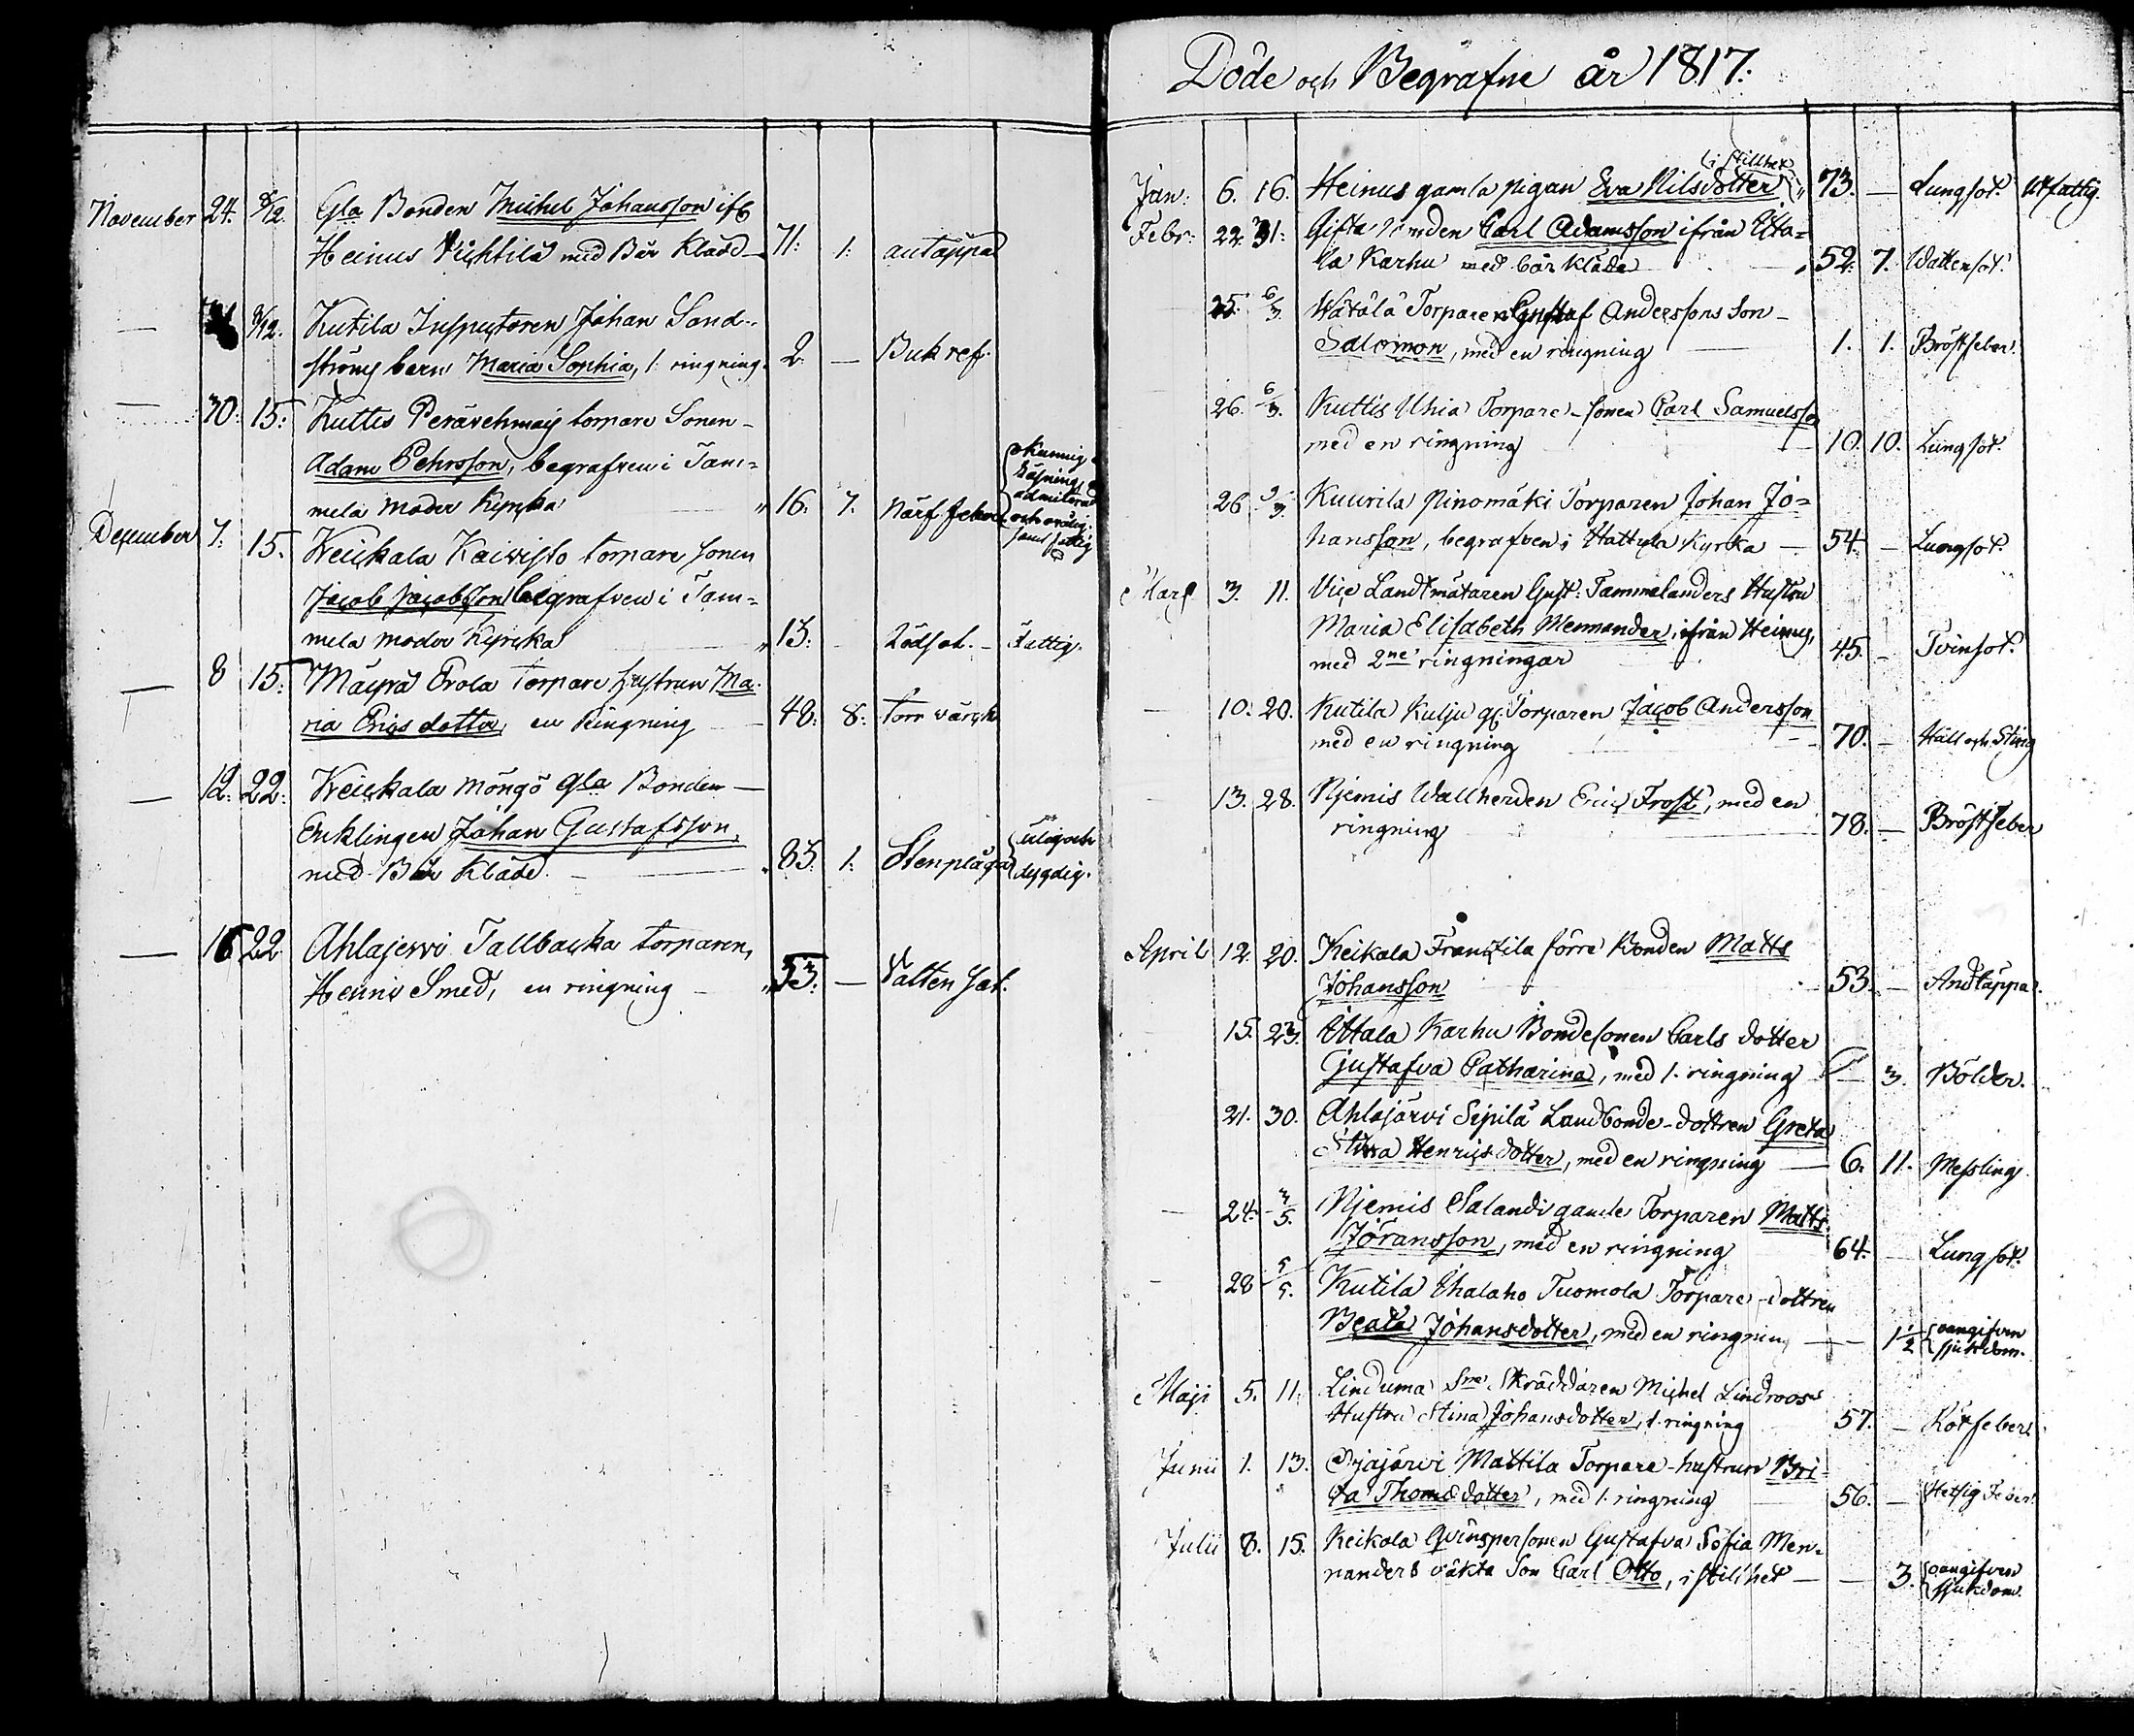 November 24. 8/12. Gla Bonden Michel Johansson ifr
Heinus Pichtilä med Bår Kläde 71: 1: antäppa
— 8/12. Kutila Inspectoren Johan Sand-
ströms barn Maria Sophia, 1. ringning. 2. — Bukref.
— 30. 15: Kuttis Perävehmais torpare Sonen
Adam Pehrsson, begrafven i Tam=
mela moder Kyrka 16. 7. Närf. feber
December 7. 15. Keickala Koivisto torpare sonen
Jacob Jacobsson begrafven i Tam=
mela moder Kyrcka 13. - Rödsot. - Fattig.
— 8 15: Mäyrä Erola torpare hustrun Ma-
ria Erics dotter, en Ringning 48: 8: torr värck
— 12. 22: Keickala Möngö Gla Bonden —
Encklingen Johan Gustafsson,
med Bår Kläde. 85. 1. Stenplåga dygdig.
— 16 22. Ahlajervi Tallbacka torparen,
Henric Smed, en ringning 53. — Vatten Sot.
Döde och Begrafne år 1817:
i stillhet
Jan: 6. 16. Heinus gamla pigan Eva Nilsdotter 73. — Lungsot. Utfattig.
Febr: 22. 31: Gifta Bonden Carl Adamsson ifrån Uta=
la Karhu med bår kläde 52: 7. Wattensot.
25. 6/3. Wätälä Torparen Gustaf Anderssons Son
Salomon, med en ringning 1. 1. Bröstfeber.
26. 6/3. Kuttis Uhia Torpare-sonen Carl Samuelsson
med en ringning 10. 10. Lungsot.
26 9/3. Kuurila Ninomäki Torparen Johan Jo=
hansson, begrafven i Hattula Kyrka — 54. - Lungsot.
Mars 3. 11. Vice Landtmätaren Gust: Tammelanders Hustru
Maria Elisabeth Mennander, ifrån Heinus,
med 2ne ringningar 45. - Tvinsot.
— 10. 20. Kutila Kulju gl. Torparen Jacob Andersson
med en ringning 70. - Håll och Sting
13. 28. Njemis Wallherden Eric Frost, med en
ringning 78. — Bröstfeber
April 12. 20. Keikala Franstila förre Bonden Matts
Johansson 53. — Andtäppa.
15. 23. Uttala Karhu Bondesonen Carls dotter
Gustafva Catharina, med 1. ringning — 3. Bölder.
21. 30. Ahlajärvi Sipilä Landbonde-dottren Greta
Stina Henricsdotter, med en ringning — 6. 11. Messling
— 24. 3/5. Njemis Salandi gamle Torparen Matts
Jöransson, med en ringning 64. Lungsot.
— 28 5/5. Kutila Uhalaho Tuomola Torpare-dottren
Beata Johansdotter, med en ringning — 1 1/2 oangifven
sjukdom.
Maji 5. 11. Linduma Sne Skräddaren Michel Lindroos
Hustru Stina Johansdotter, 1. ringning 57. - Rötfeber.
Junii 1. 13. Ojajärvi Mattila Torpare-hustrun Bri-
ta Thomsdotter, med 1. ringning 56. — Hetsig Feber.
Julii 8. 15. Keikala Qvinspersonen Gustafva Sofia Men-
nanders oäkta Son Carl Otto, i stillhet — — 3. oangifven
sjukdom.